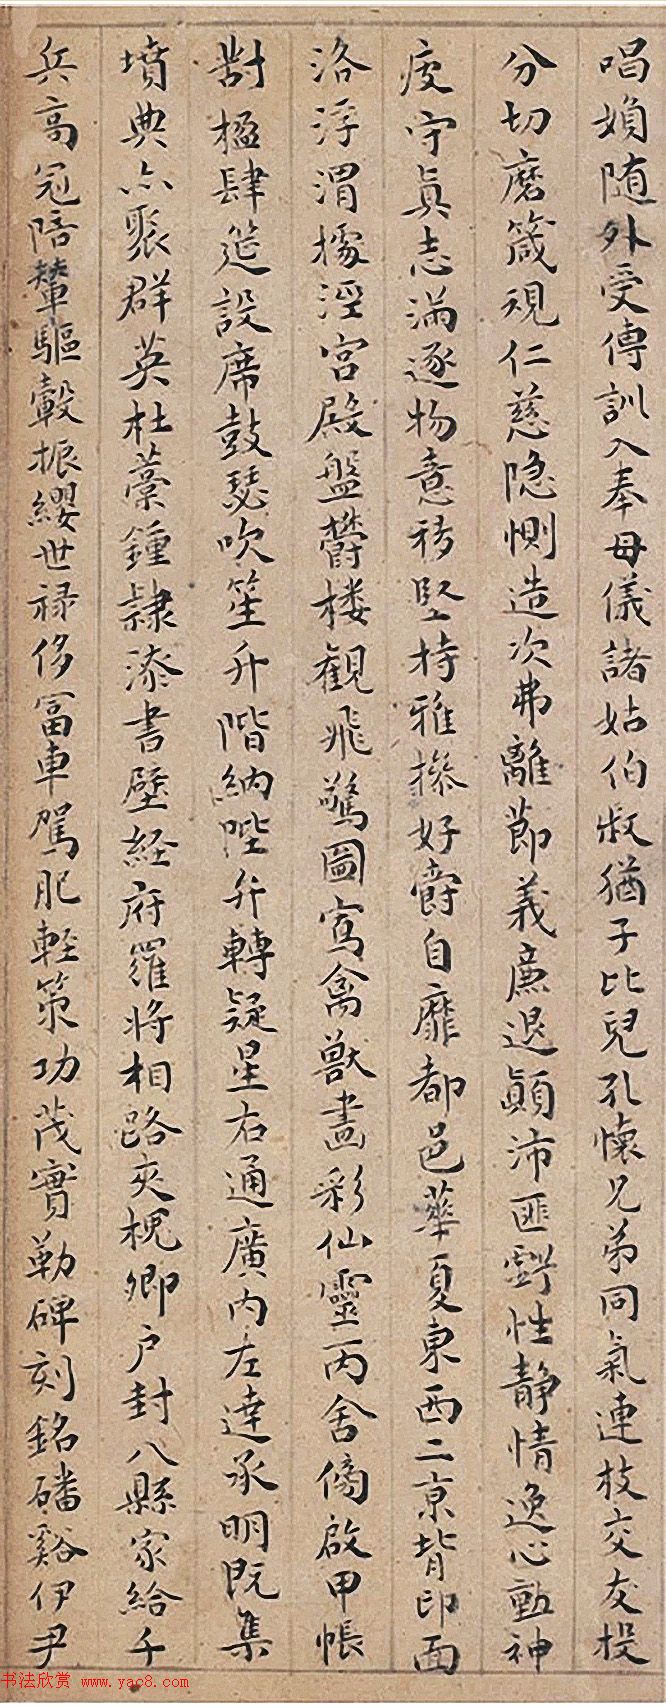 唱媍随外受傅訓入奉母儀諸姑伯叔猶子比兒孔懷兄弟同氣連枝交友投
分切磨箴規仁慈隐惻造次弗離節義廉退顛沛匪虧性静情逸心動神
疲守真志滿逐物意移堅持雅操好爵自靡都邑華夏東西二京背邙面
洛浮渭據涇宫殿盤欝楼觀飛驚圖寫禽獸畫彩仙靈丙舍傍啟甲帳
對楹肆筵設席鼓瑟吹笙升階納陛弁轉疑星右通廣内左達承明既集
墳典亦聚群英杜藁鍾隸漆書壁経府羅將相路夾槐卿户封八縣家給千
兵高冠陪輦驅轂振纓世禄侈富車駕肥輕策功茂實勒碑刻銘磻谿伊尹
书法欣赏 www.yac8.com